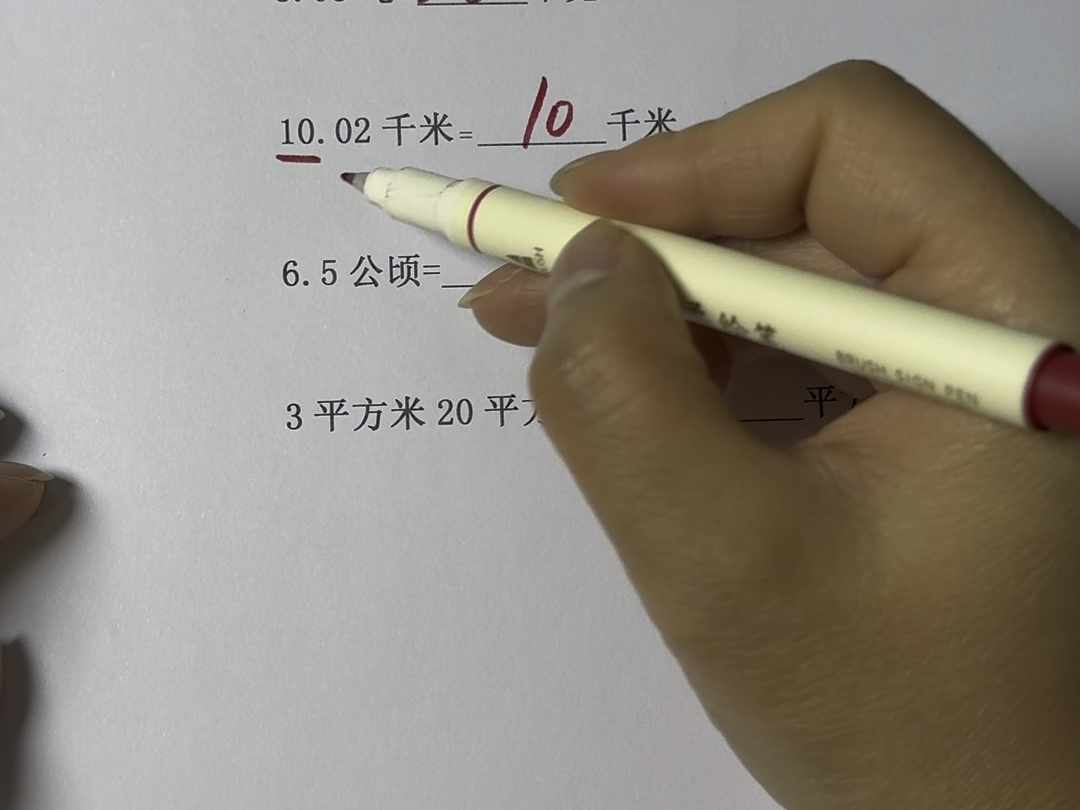 10.02 千米=10千米
6.5 公顷=
3 平方米 20 平方 平方
BRUSH SIGN PEN